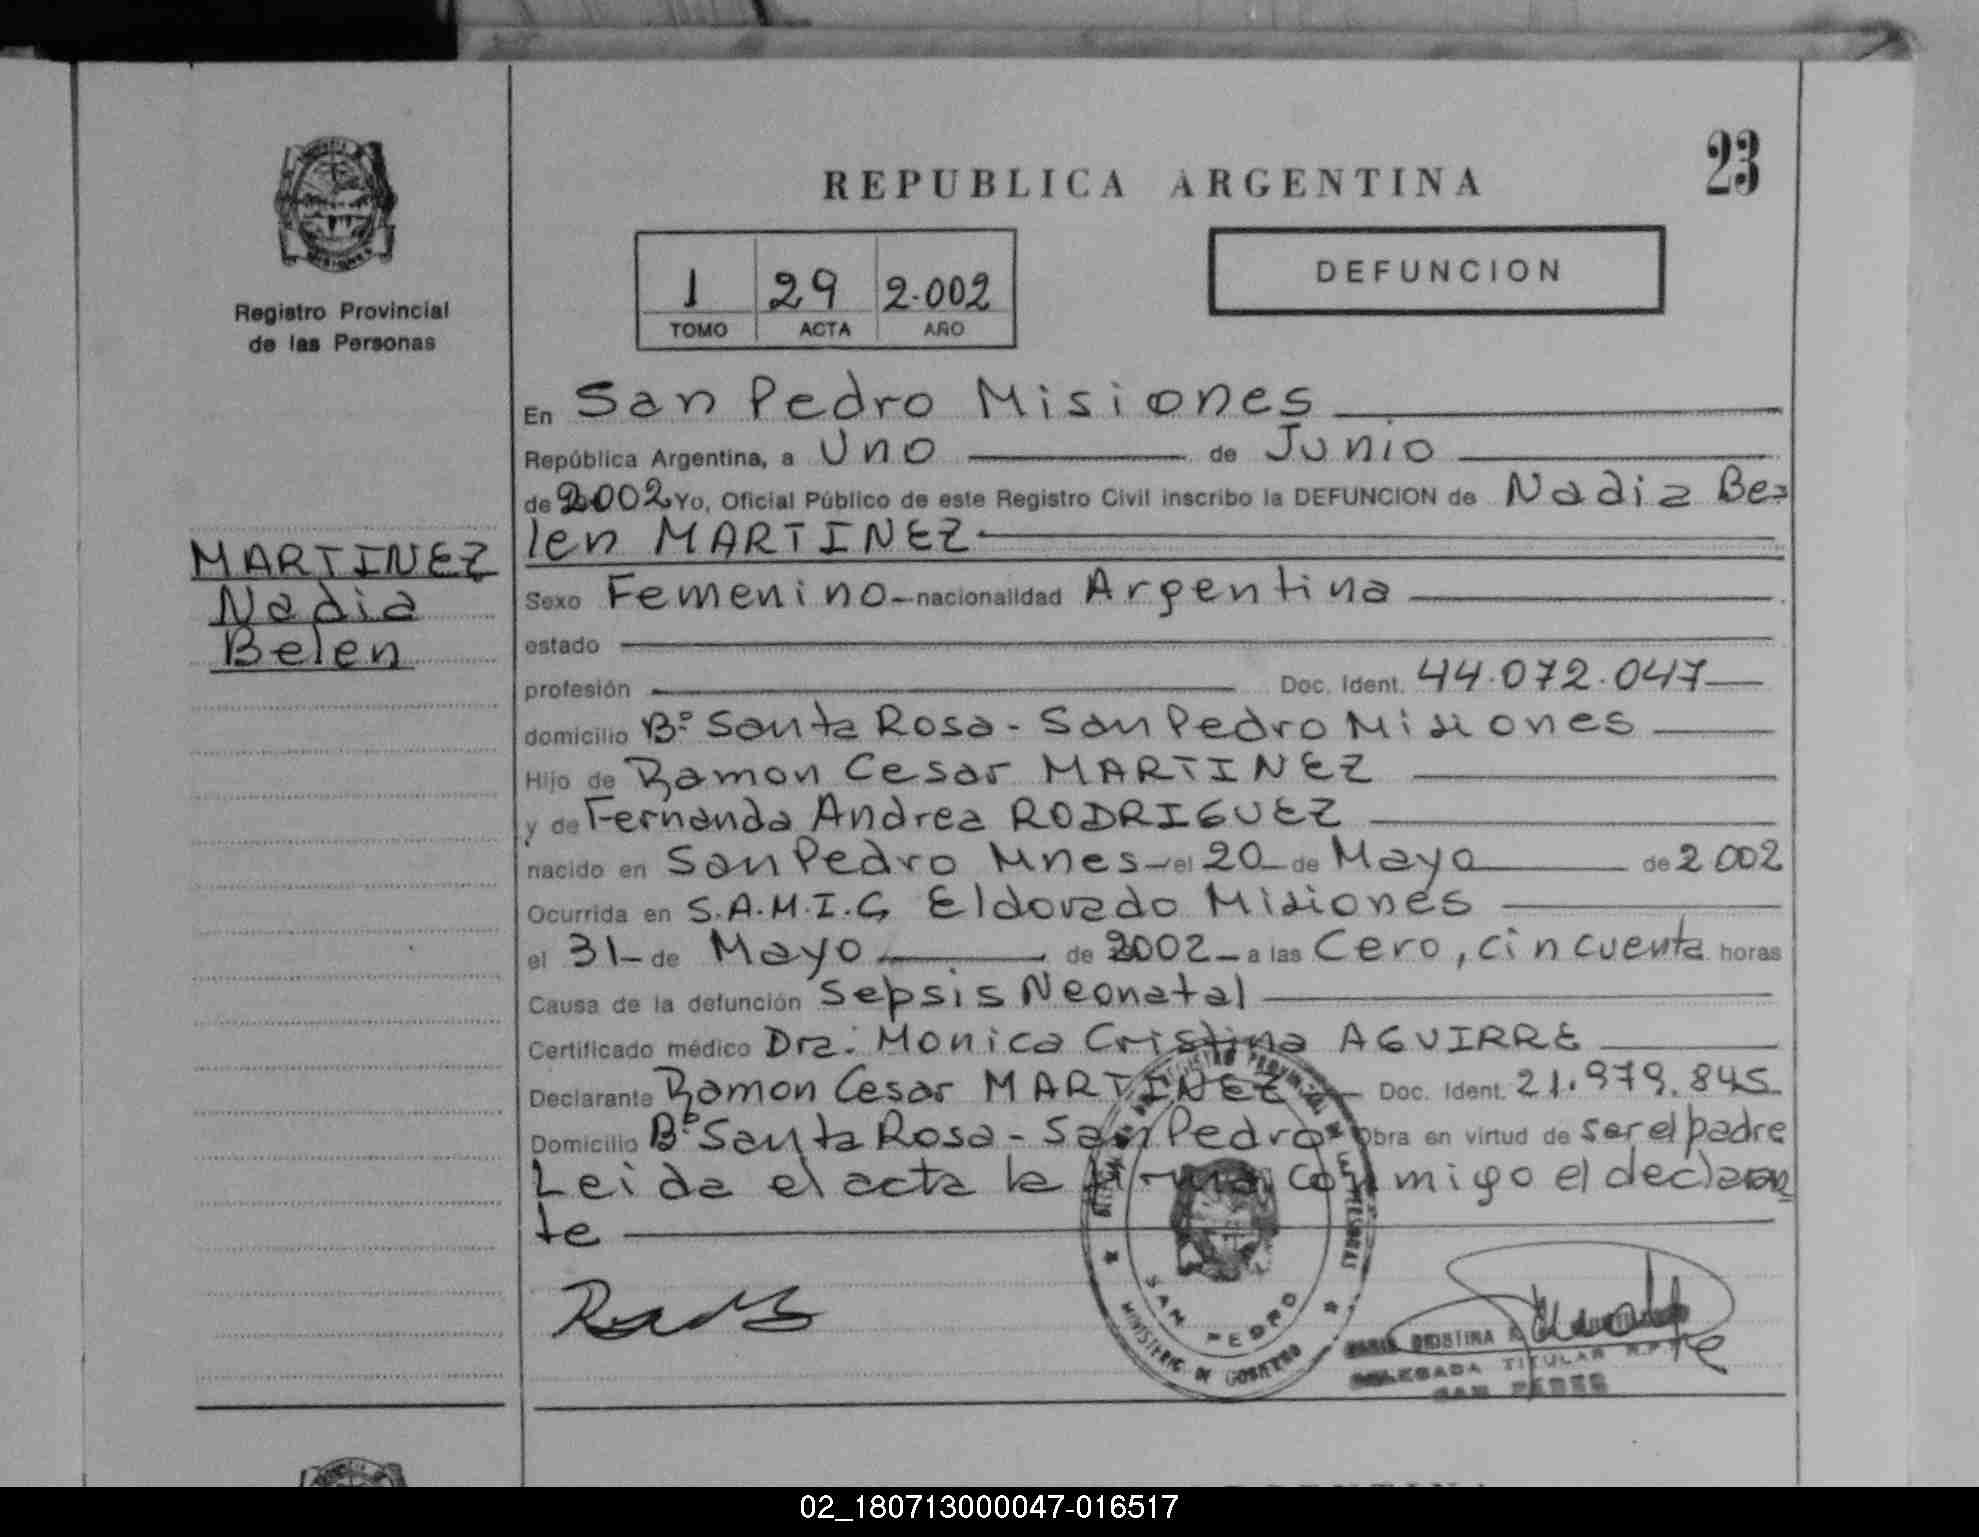 REPUBLICA ARGENTINA
23
1 29 2.002
TOMO ACTA AÑO
DEFUNCION
Registro Provincial
de las Personas
MARTINEZ
Nadia
Belen
En San Pedro Misiones
República Argentina, a Uno de Junio
de 2002 Yo, Oficial Público de este Registro Civil inscribo la DEFUNCION de Nadia Be=
len MARTINEZ
Sexo Femenino nacionalidad Argentina
estado
profesión Doc. Ident. 44.072.047
domicilio B° Santa Rosa - San Pedro Misiones
Hijo de Ramon Cesar MARTINEZ
y de Fernanda Andrea RODRIGUEZ
nacido en San Pedro Mnes el 20 de Mayo de 2002
Ocurrida en S.A.M.I.C Eldorado Misiones
el 31 de Mayo de 2002 a las Cero, cincuenta horas
Causa de la defunción Sepsis Neonatal
Certificado médico Dra: Monica Cristina AGUIRRE
Declarante Ramon Cesar MARTINEZ Doc. Ident. 21.979.845
Domicilio B° Santa Rosa - San Pedro Obra en virtud de ser el padre
Leida el acta la firma conmigo el declaran
te
SAN PEDRO
MINISTERIO DE GOBIERNO
CRISTINA
DELEGADA TITULAR R.P.P.
SAN PEDRO
02_180713000047-016517